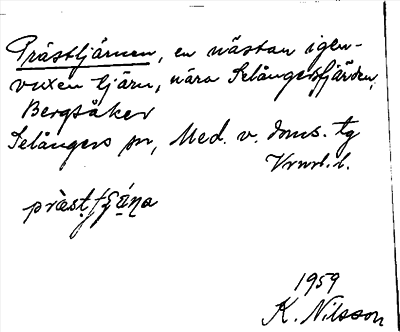 Prästtjärnen, en nästan igen-
vuxen tjärn, nära Selångersfjärden,
Bergsåker
Selångers sn, Med. v. doms. tg
Vrnrl. l.
1959
K. Nilsson